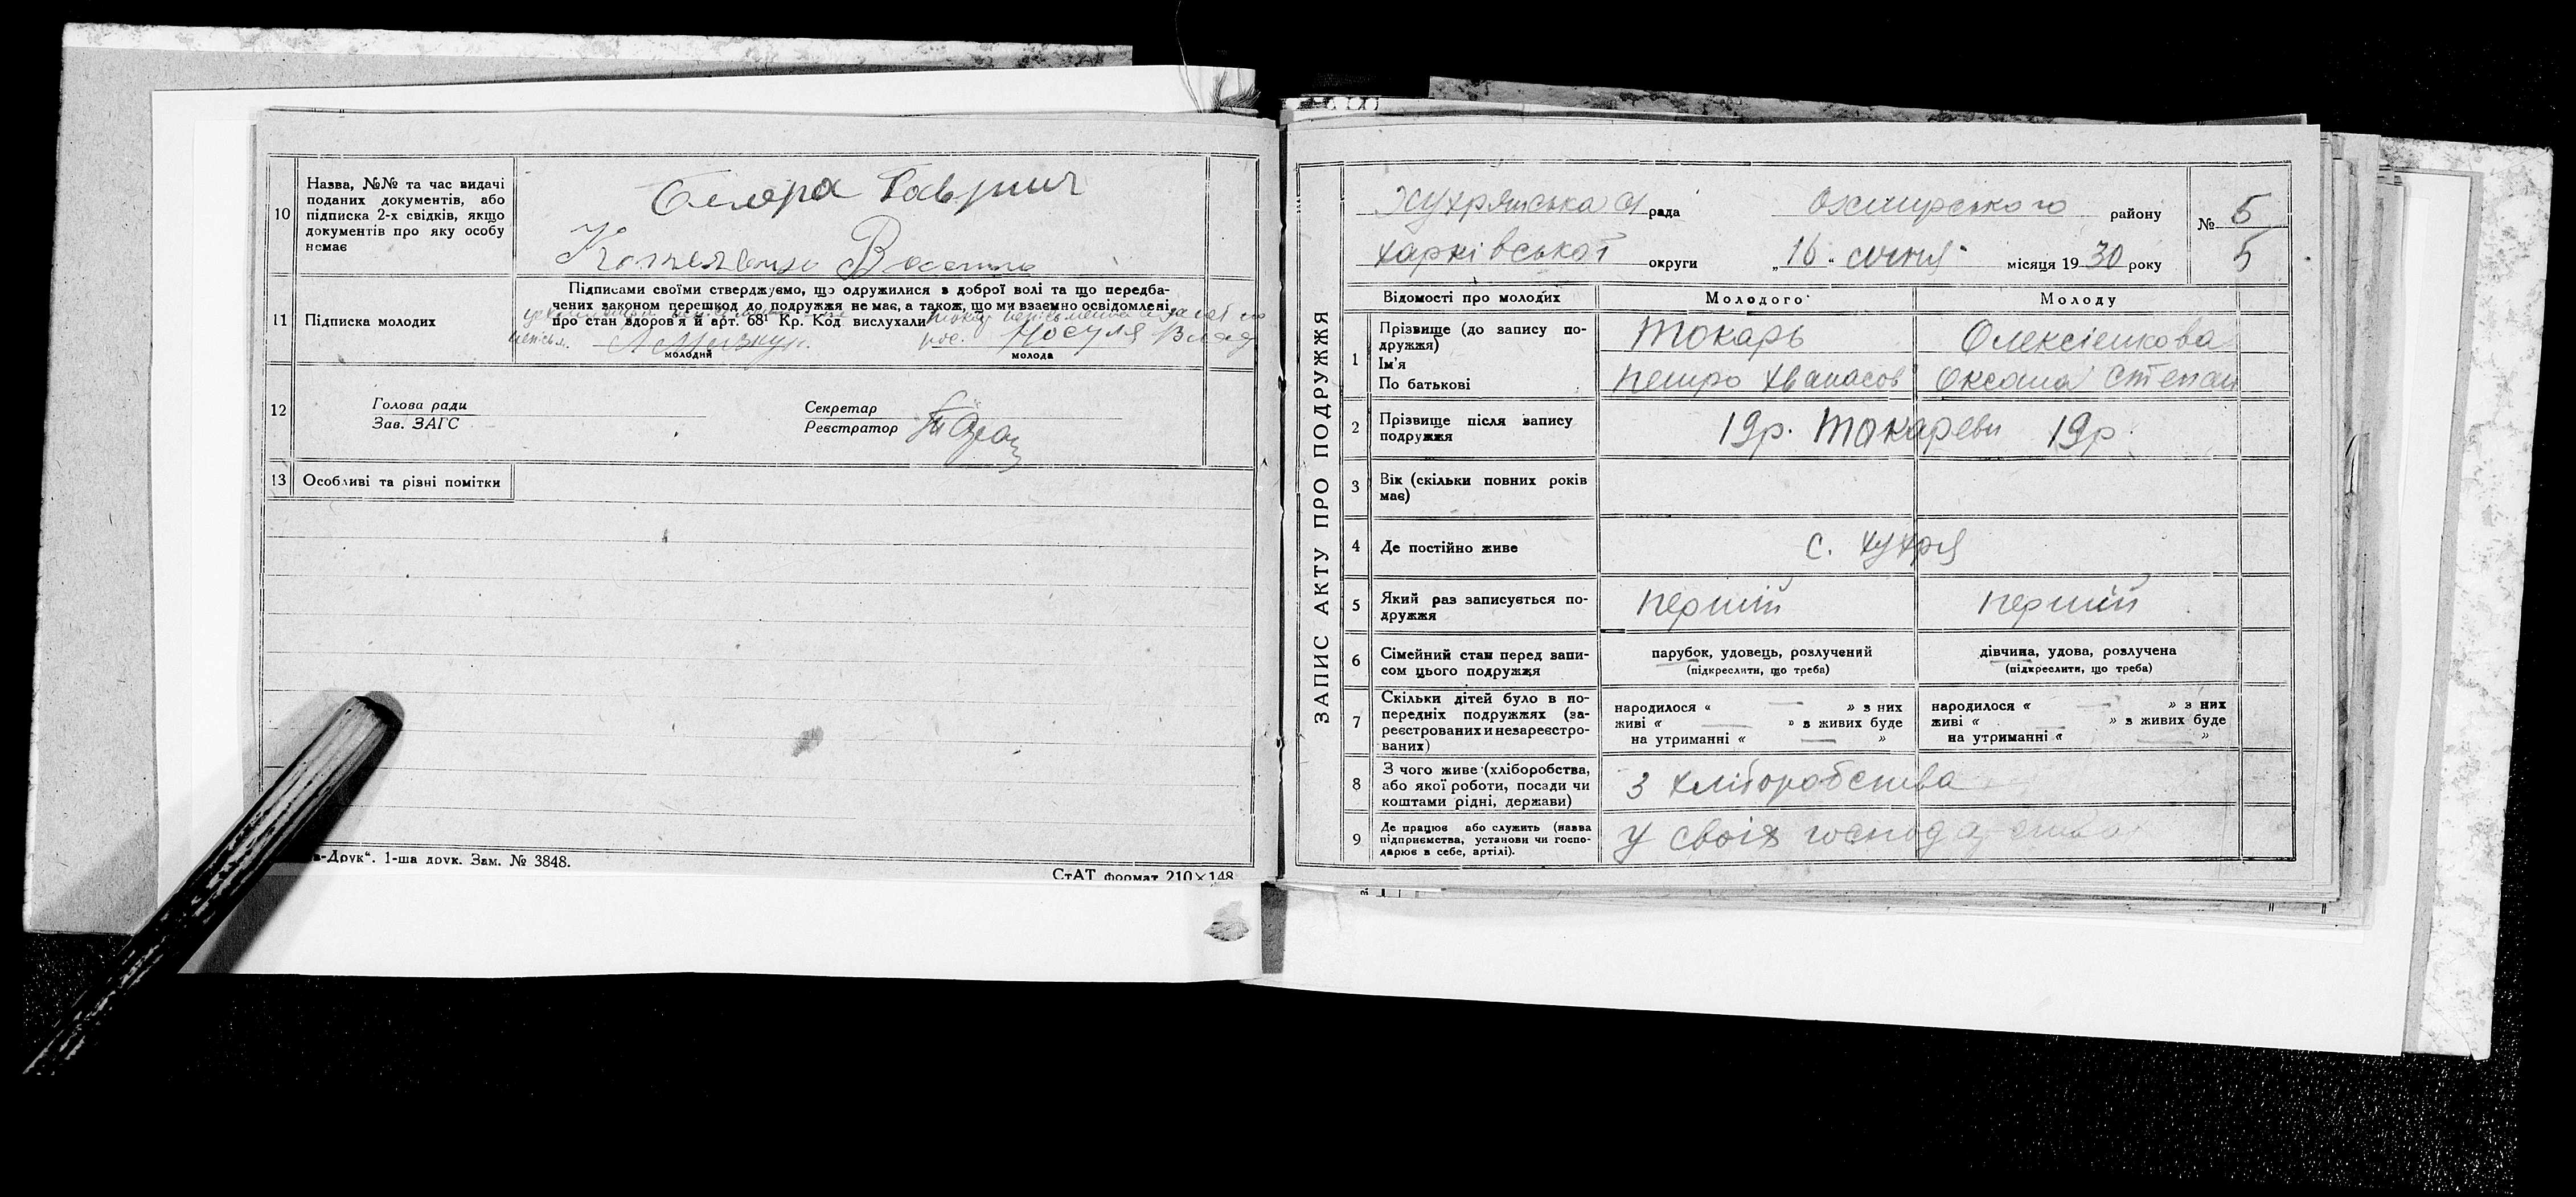 10
Назва, №№ та час видачі
поданих документів, або
підписка 2-х свідків, якщо
документів про яку особу
немає
11
Підписка молодих
Підписами своїми стверджуємо, що одружилися з доброї волі та що передба-
чених законом перешкод до подружжя не має, а також, що ми взаємно освідомлені
про стан здоров'я й арт. 68¹ Кр. Код вислухали
Носуля
молодий
молода
12
Голова ради
Зав. ЗАГС
Секретар
Реєстратор
13
Особливі та різні помітки
-Друк". 1-ша друк. Зам. № 3848.
СтАТ формат 210×148
ЗАПИС АКТУ ПРО ПОДРУЖЖЯ
Хухрянська с/ рада Охтирського району № 5
Харківської округи „16" січня місяця 1930 року 5
Відомості про молодих Молодого Молоду
1
Прізвище (до запису по-
дружжя)
Ім'я
По батькові
Токарь Олексієнкова
Петро Хванасов Оксана Степан
2
Прізвище після запису
подружжя
19р. Токареви 19р.
3
Вік (скільки повних років
має)
4
Де постійно живе
с. Хухря
5
Який раз записується по-
дружжя
перший перший
6
Сімейний стан перед запи-
сом цього подружжя
парубок, удовець, розлучений
(підкреслити, що треба)
дівчина, удова, розлучена
(підкреслити, що треба)
7
Скільки дітей було в по-
передніх подружжях (за-
реєстрованих и незареєстро-
ваних)
народилося « — » з них
живі « — » з живих буде
на утриманні « — »
народилося « — » з них
живі « — » з живих буде
на утриманні « — »
8
З чого живе (хліборобства,
або якої роботи, посади чи
коштами рідні, держави)
З хліборобства
9
Де працює або служить (назва
підприємства, установи чи госпо-
дарює в себе, артілі).
У своїх